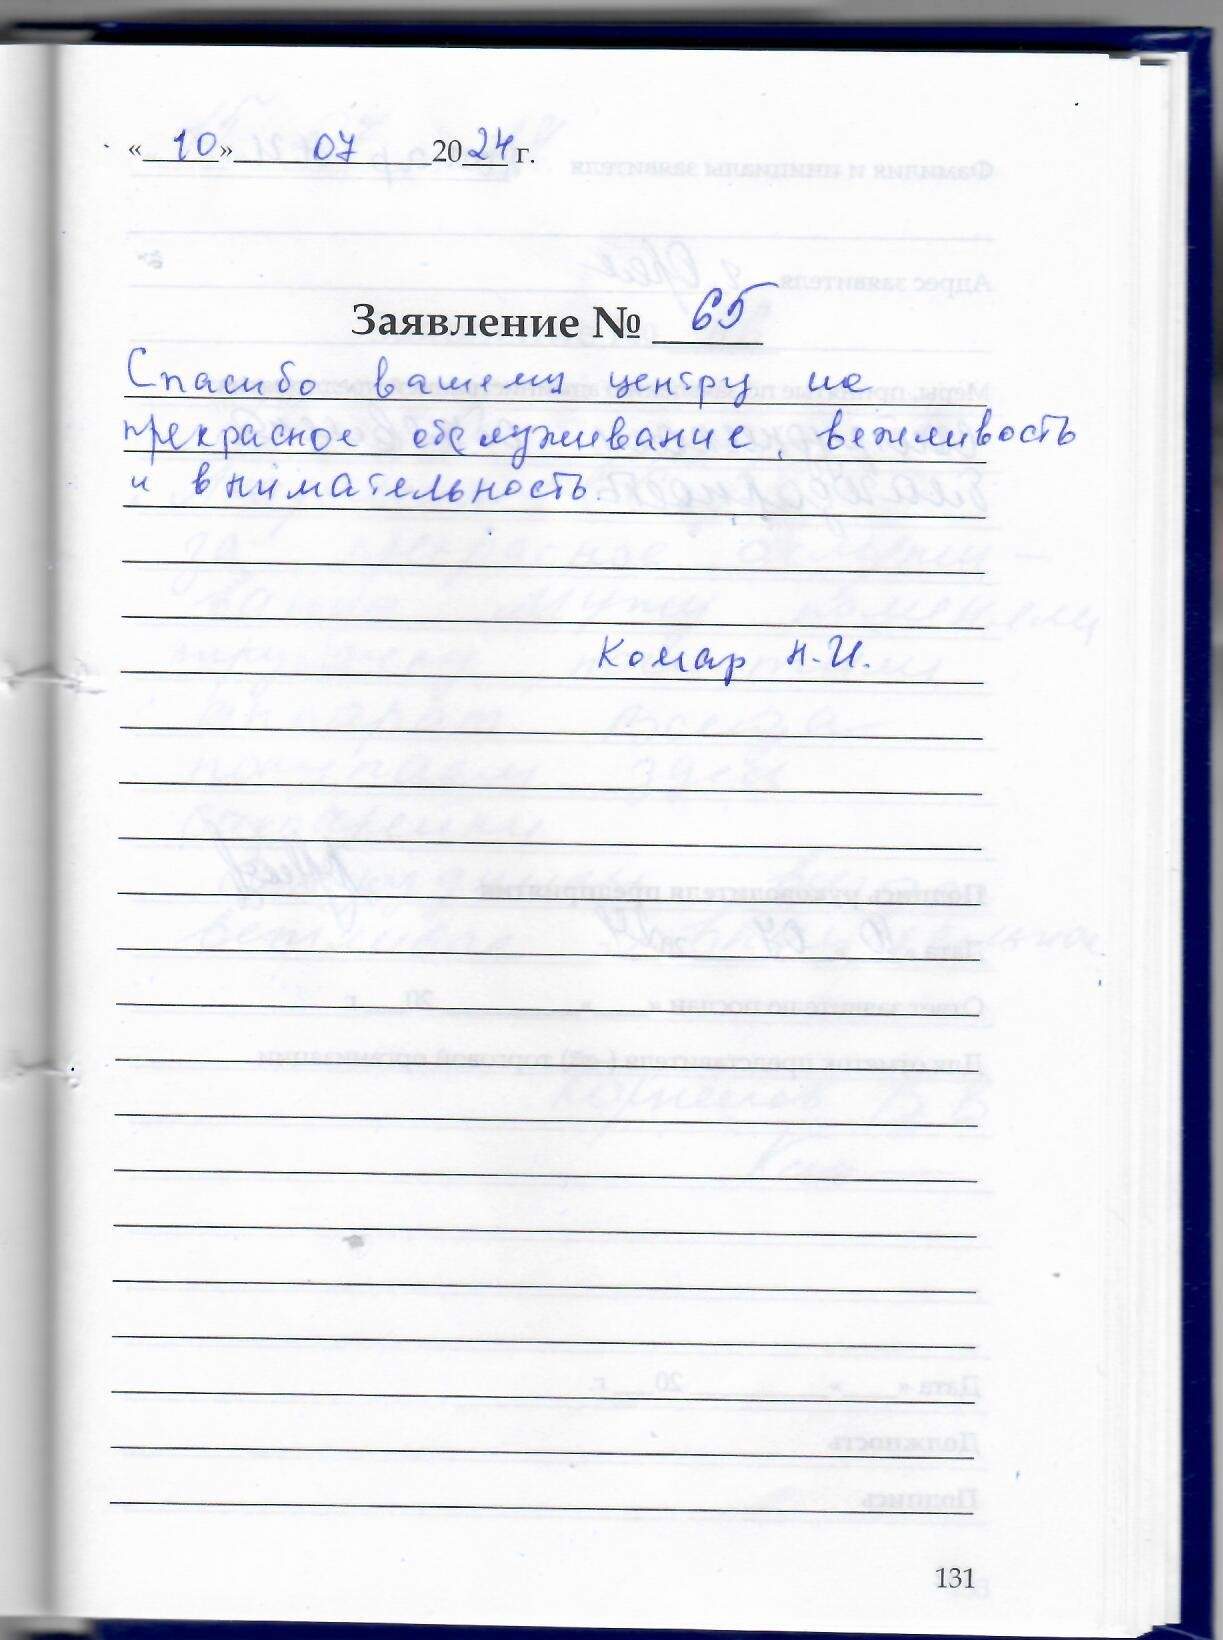 «10» 07 2024 г.
Заявление № 65
Спасибо вашему центру на
прекрасное обслуживание, вежливость
и внимательность.
Комар Н.И.
131